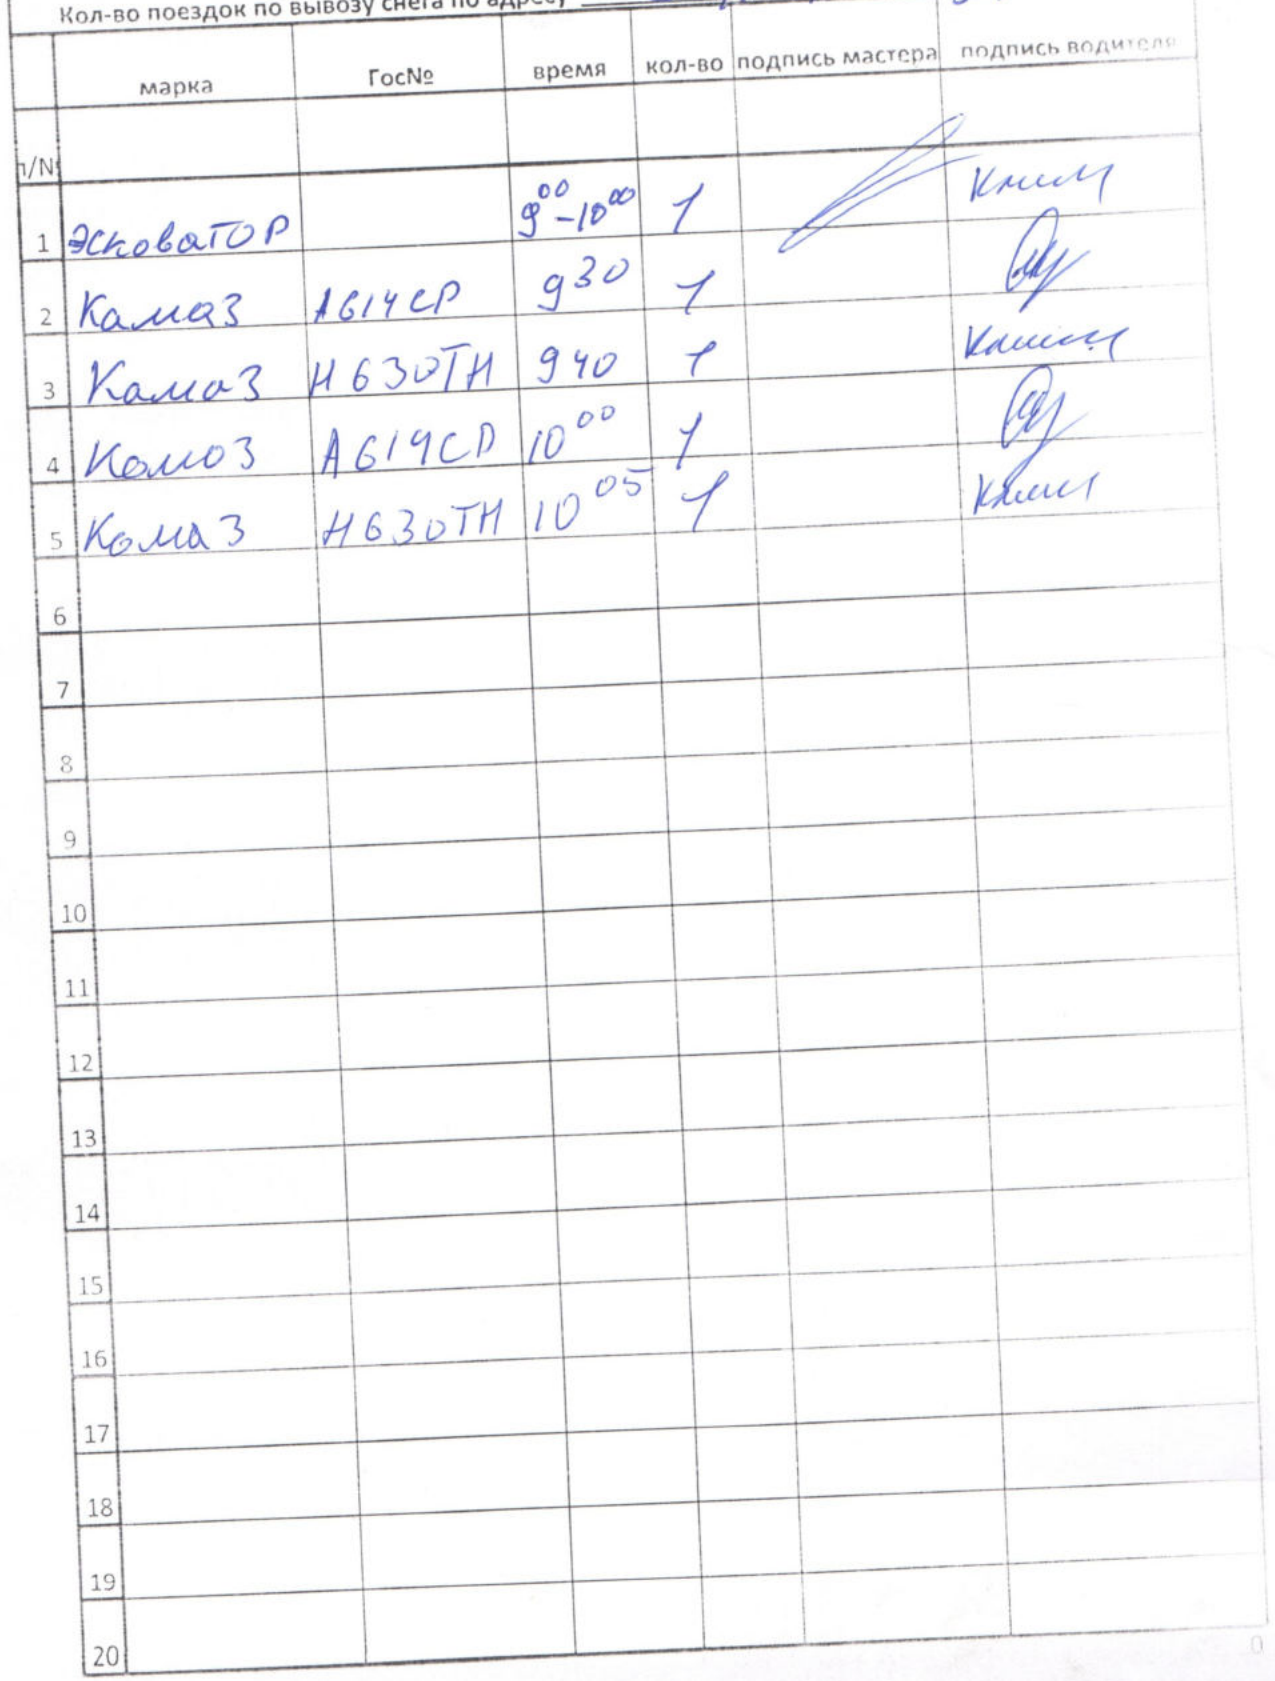 Кол-во поездок по вывозу снега по адресу
марка ГосNo время кол-во подпись мастера подпись водителя
п/N
1 Эсковатор 9 00 - 10 00 1
2 Камаз А614СР 9 30 1
3 Камаз Н630ТН 9 40 1
4 Камаз А614СР 10 00 1
5 Камаз Н630ТН 10 05 1
6
7
8
9
10
11
12
13
14
15
16
17
18
19
20
0